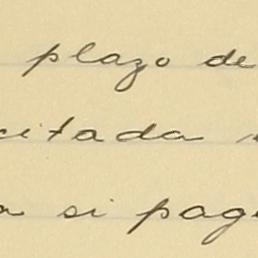 plazo de
citada
a si pag